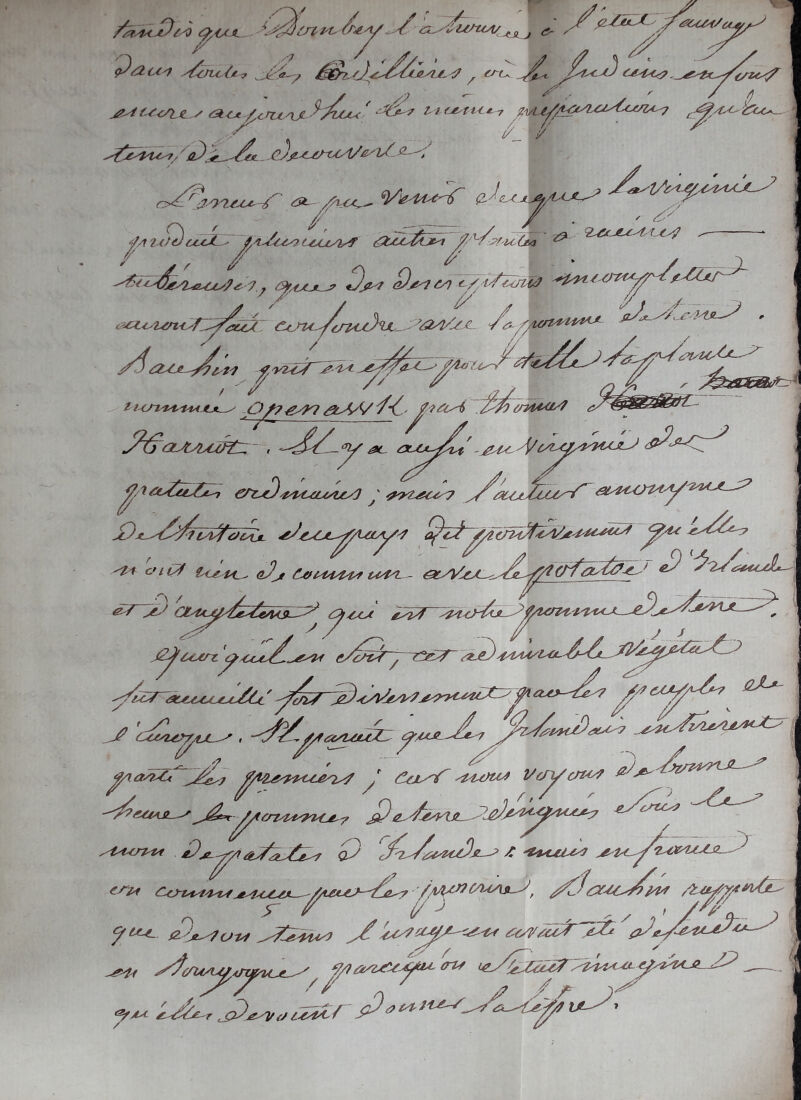 tandisque Dombey l'a trouvée à l'état sauvage
dans toutes les Cordillières, où les Indiens en font
encore aujourd'hui les mêmes préparations qu'au
tems de la découverte.
L'erreur a pu venir de ce que la virginie
produit plusieurs autres plantes à racines —
tubéreuses, que des descriptions incomplettes
auront fait confondre avec la pomme de terre.
Bauhin prit en effet pour telle la plante
nommée openawk par thomas
Harriot. Il y a aussi en virginie des
patates ordinaires; mais l'auteur anonyme
de l'histoire de ce pays dit positivement qu'elles
n'ont rien de commun avec le potatoe d'Irlande
et d'angleterre, qui est notre pomme de terre.
quoiqu'il en soit, cet admirable végétal
fut accueilli fort diversement par les peuples de
l'Europe. Il parait que les Irlandais en tirèrent
parti les premiers; car nous voyons de bonne
heure les pommes de terre désignées sous le
nom de patates d'Irlande: mais en france
on commenca par les proscrire. Bauhin rapporte
que de son tems l'usage en avait été défendu
en Bourgogne, parcequ'on s'etait imaginé —
qu'elles devoient donner la lèpre.